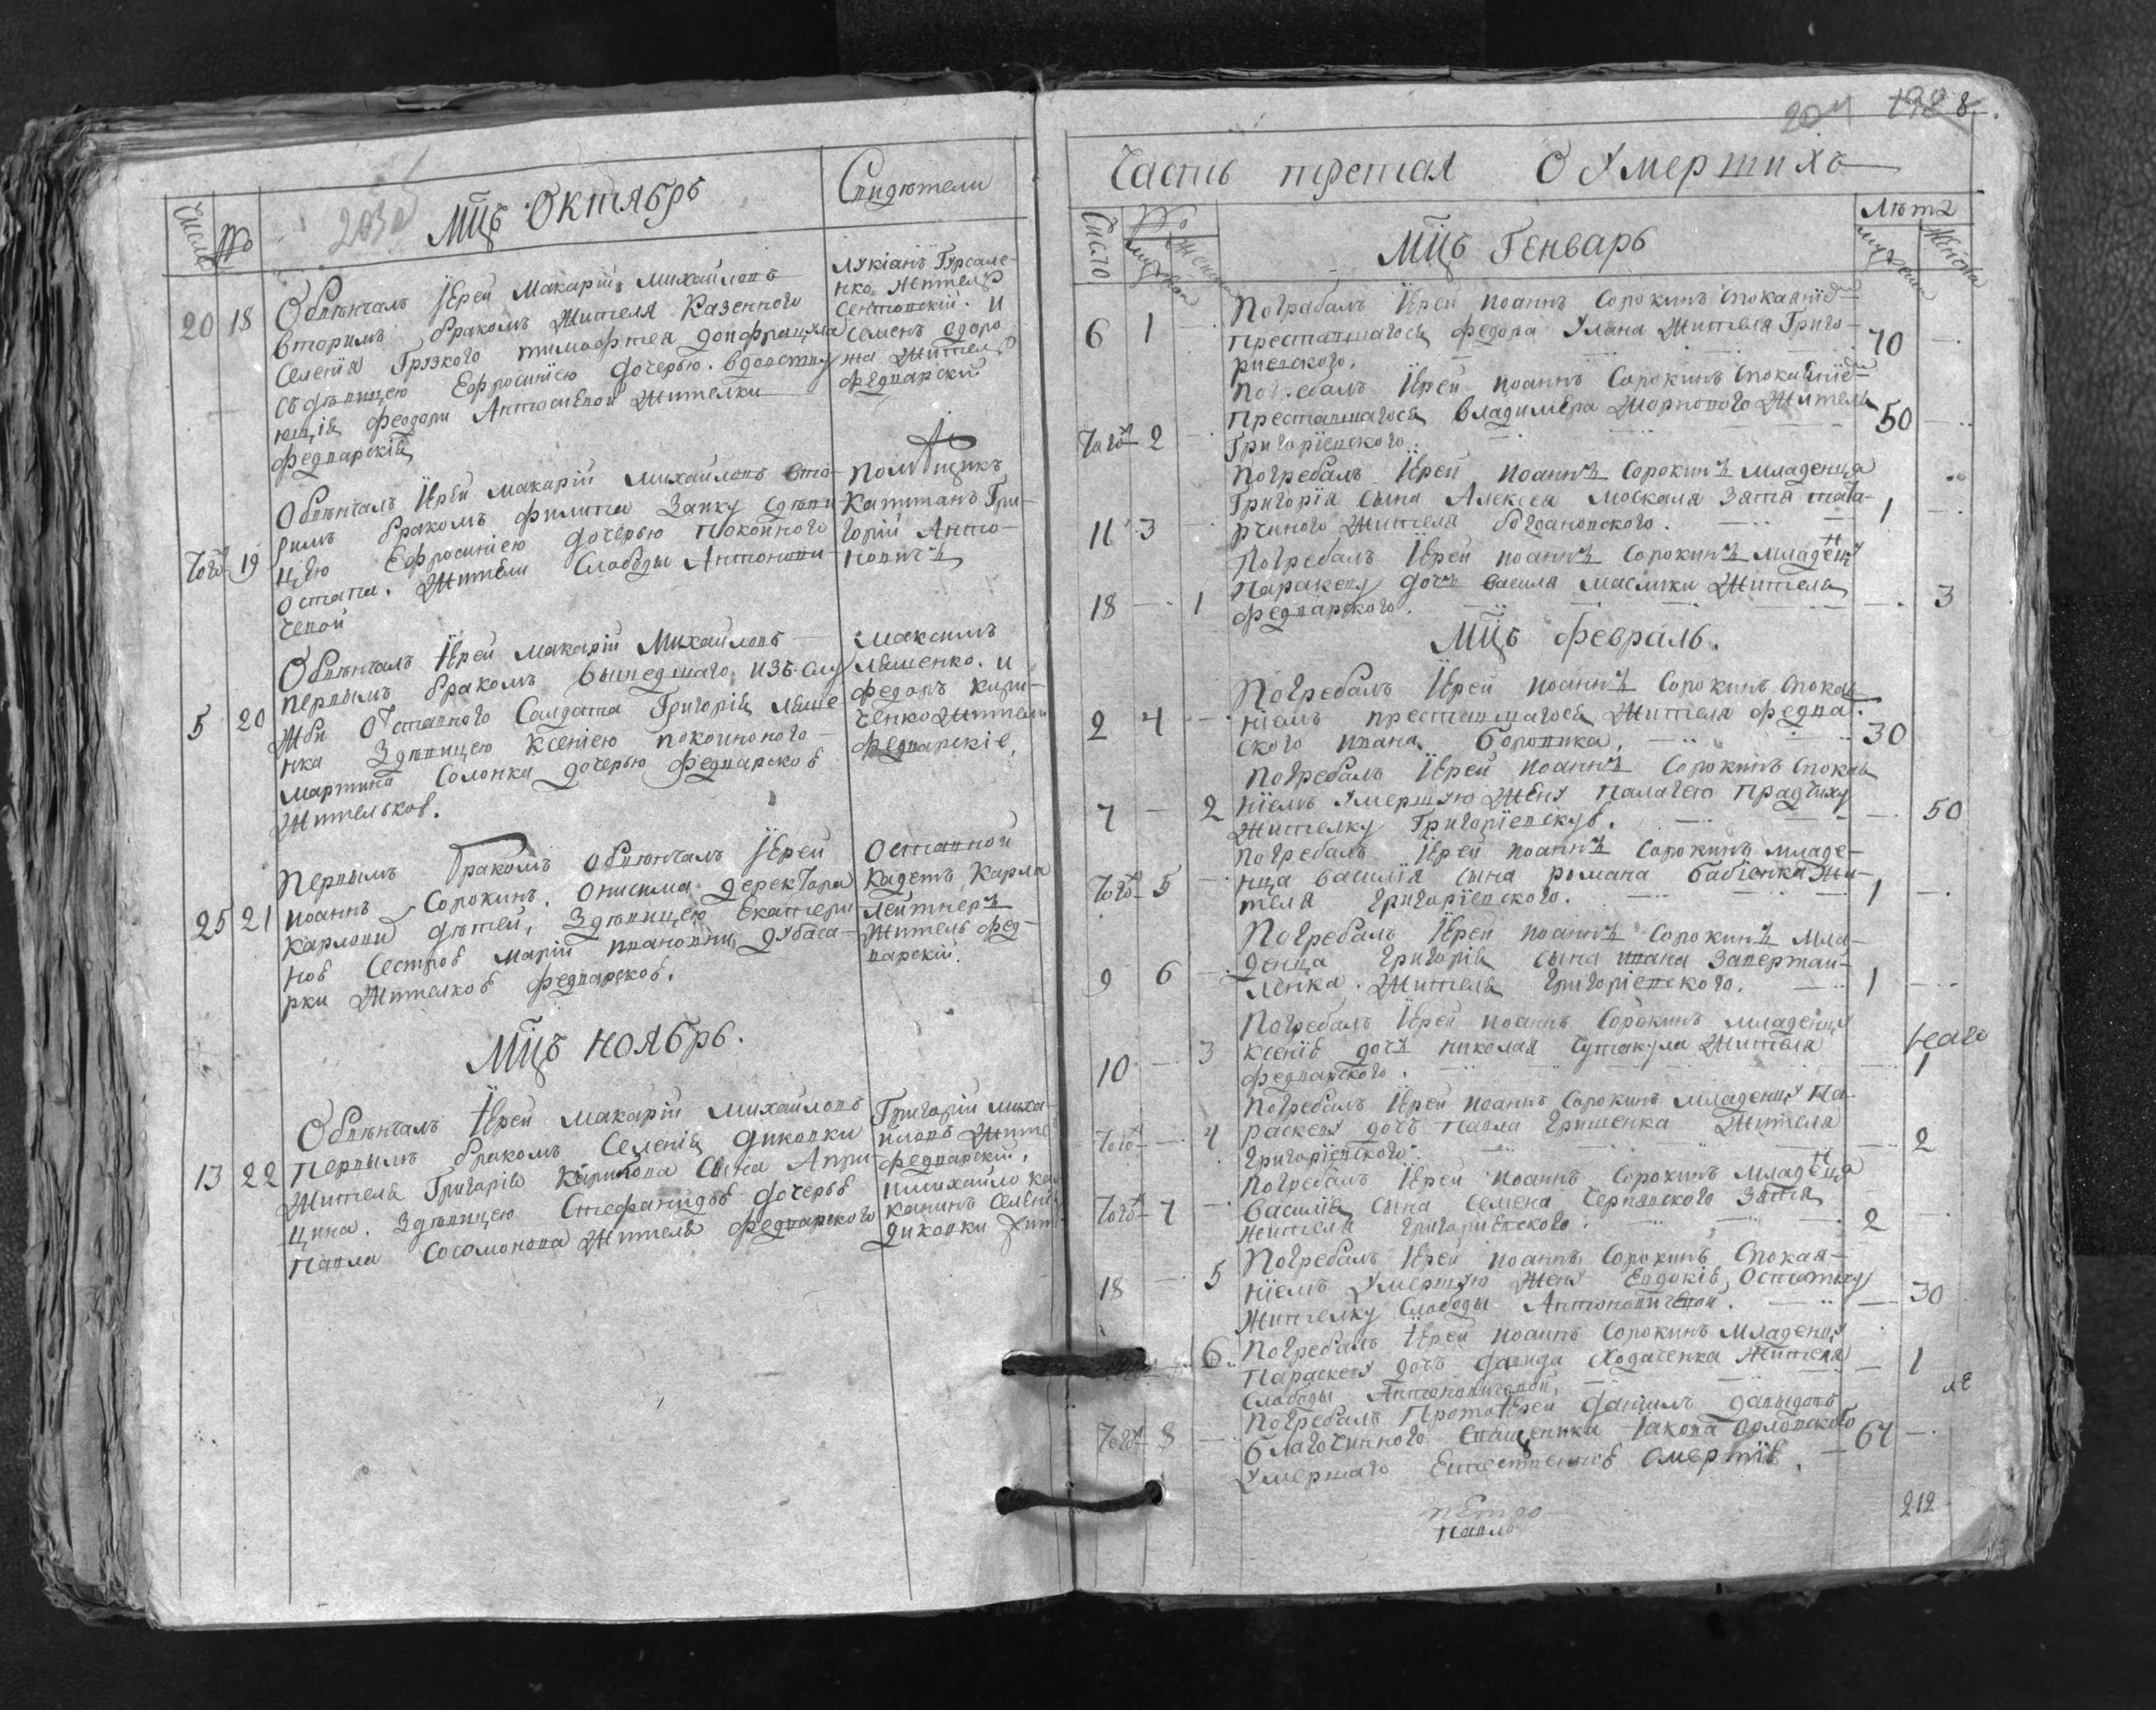 203
Число №
Мцъ Октябрь
Свидѣтели
20 18
Обвѣнчалъ Іерей Макарій Михайловъ
вторимъ бракомъ Жителя Казенного
Селенія Грузкого тимофтея
съ дѣвицею Ефросиніею дочерью вдовствую
ющія феодори Антоніевой Жителки
федварскія
Лукіанъ Гурсале-
нко Жителя
Семенъ сдоро
Жителя
федварскій
Того 19
Обвѣнчалъ Іерей макарій михайловъ вто-
римъ бракомъ филипа Запку сдѣви-
цею Ефросиніею дочерью покойного
остапа. Жители Слободы Антонови-
чевой
помѣщикъ
Каптанъ Гри-
горій Анто-
новичъ
5 20
Обвѣнчалъ Іерей макарій Михайловъ
первымъ бракомъ вышедшаго изъ слу
жби Отставного Салдата Григорія Леше
нка Здѣвицею Ксеніею покоиноного
мартина Солонка дочерью федварской
Жителькой.
максимъ
Лешенко. и
федоръ кири-
ченко Жители
федварскіе.
25 21
Первымъ Бракомъ Обвѣнчалъ Іерей
иоаннъ Сорокинъ. Онисима деректора
Карлови дѣтей, Здѣвицею Екатери
ной Сестрой Марій ивановни дубаса-
рки Жителкой федварской.
Оставной
Кадетъ Карла
Лейтнеръ
Житель фед-
варскій.
Мцъ ноябрь.
13 22
Обвѣнчалъ Іерей макарій михайловъ
первымъ бракомъ Селенія диковки
Жителя Григорія Кирилова Сына
цина. Здѣвицею Стефанидой дочерью
павла Соломонова Жителя федварского
Григорій миха-
иловъ Жите
федварскій,
имихайло
канинъ Селенія
диковки жит
204 198 8.
Часть третая О Умершихъ
Число № мужеска женска
Мцъ Генварь
Лѣта мужеска женска
6 1
Пограбалъ Іерей иоаннъ Сорокинъ споканіем
преставшагося федора Улана Жителя Григо-
риевского. 70
Того 2
погребалъ Іерей иоаннъ Сорокинъ споканіем
преставшагося владимера Жителя
Григоріевского. 50
11 3
Погребалъ Іерей иоаннъ Сорокинъ младенца
Григорія сына Алексея москаля Зятя
Жителя богдановского. 1
18 1
Погребалъ Іерей иоаннъ Сорокинъ младену
Параскеву дочь василя маслики Жителя
федварского. 3
Мцъ февраль.
2 4
Погребалъ Іерей иоаннъ Сорокинъ спокая
ніемъ преставшагося Жителя федва
ского ивана боровика. 30
7 2
погребалъ Іерей иоаннъ Сорокинъ спокая
ніемъ умершую Жену палагею
Жителку Григоріевскую. 50
Того 5
погребалъ Іерей иоаннъ Сорокинъ младе-
нца василія сына романа бабіенка Жи-
теля григоріевского. 1
9 6
Погребалъ Іерей иоаннъ Сорокинъ мла-
денца григорія сына ивана
ленка. Жителя григоріевского. 1
10 3
Погребалъ Іерей иоаннъ Сорокинъ младенцу
ксенію дочь николая Чутакула Жителя
федварского. 1
Того 4
погребалъ Іерей иоаннъ Сорокинъ младенцу па-
раскеву дочь павла гришенка Жителя
григоріевского. 2
Того 7
погребалъ Іерей иоаннъ Сорокинъ младенца
василія сына семена чернявского Зятя
жителя григориевского. 2
18 5
Погребалъ Іерей иоаннъ Сорокинъ Спокая-
ніемъ умершую Жену Евдокію
Жителку Слободы Антоновичевой. 30
6
Погребалъ Іерей иоаннъ Сорокинъ младенцу
параскеву дочь давида Ходаченка Жителя
Слободы Антоновичевой. 1
Того 8
погребалъ Протоіерей даніилъ давыдовъ
благочинного священника Іакова Орловского
умершаго Естественной смертію. 64
петро
павлъ
212